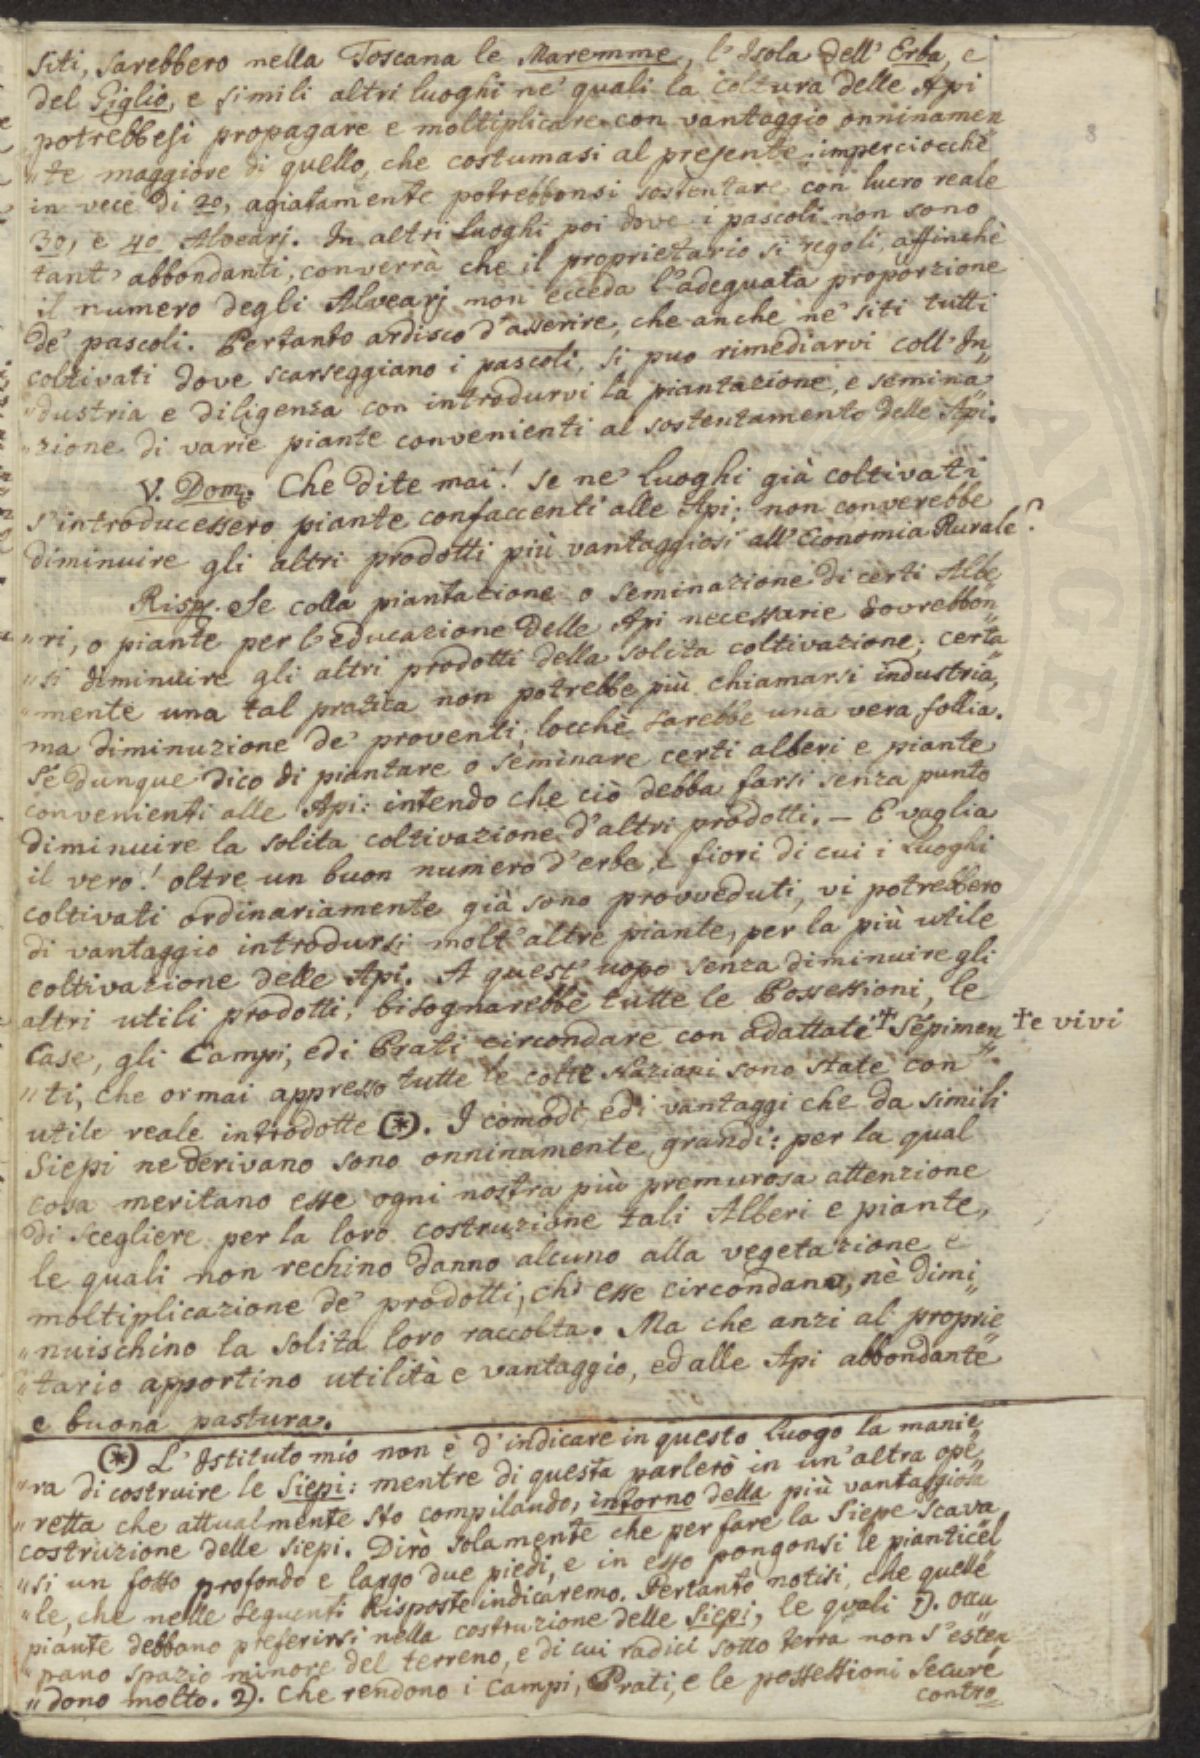 siti, sarebbero nella Toscana le Maremme, l'Isola dell'Erba, e
del Giglio, e simili altri luoghi ne' quali la coltura delle Api
potrebbesi propagare e moltiplicare con vantaggio onninamen
"te maggiore di quello, che costumasi al presente: imperciocchè
in vece di 20, agiatamente potrebbonsi sostentare con lucro reale
30, e 40 Alvearj. In altri luoghi poi dove i pascoli non sono
tant' abbondanti, converrà che il proprietario si regoli, affinchè
il numero degli Alvearj non ecceda l'adeguata proporzione
de' pascoli. Pertanto ardisco d'asserire, che anche ne' siti tutti
coltivati dove scarseggiano i pascoli, si puo rimediarvi coll'In„
"dustria e diligenza con introdurvi la piantazione, e semina„
"zione di varie piante convenienti al sostentamento delle Api.
V. Dom. Che dite mai! se ne' luoghi già coltivati
s'introducessero piante confaccenti alle Api; non converebbe
diminuire gli altri prodotti più vantaggiosi all'Economia Rurale?
Risp. Se colla piantazione o seminazione di certi Albe„
"ri, o piante per l'educazione delle Api necessarie dovrebbon„
"si diminuire gli altri prodotti della solita coltivazione; certa„
"mente una tal pratica non potrebbe più chiamarsi industria,
ma diminuzione de' proventi, locchè sarebbe una vera follia.
Se dunque dico di piantare o seminare certi alberi e piante
convenienti alle Api: intendo che ciò debba farsi senza punto
diminuire la solita coltivazione d'altri prodotti. – E vaglia
il vero! oltre un buon numero d'erbe, e fiori di cui i Luoghi
coltivati ordinariamente già sono provveduti, vi potrebbero
di vantaggio introdursi molt'altre piante, per la più utile
coltivazione delle Api. A quest'uopo senza diminuire gli
altri utili prodotti, bisognarebbe tutte le Possessioni, le
Case, gli Campi, ed i Prati circondare con adattate † Sepimen
† e vivi
"ti, che ormai appresso tutte le colte Nazioni sono state con
utile reale introdotte (*). I comodi, ed i vantaggi che da simili
Siepi ne derivano sono onninamente grandi: per la qual
cosa meritano esse ogni nostra più premurosa attenzione
di scegliere per la loro costruzione tali Alberi e piante,
le quali non rechino danno alcuno alla vegetazione e
moltiplicazione de' prodotti, ch' esse circondano, nè dimi„
"nuischino la solita loro raccolta. Ma che anzi al proprie„
"tario apportino utilità e vantaggio, ed alle Api abbondante
e buona pastura.
(*) L'Istituto mio non è d'indicare in questo Luogo la manie„
"ra di costruire le Siepi: mentre di questa parlerò in un'altra ope„
"retta che attualmente sto compilando, intorno della più vantaggiosa
costruzione delle siepi. Dirò solamente che per fare la Siepe scava„
"si un fosso profondo e largo due piedi, e in esso pongonsi le pianticel„
"le, che nelle seguenti Risposte indicaremo. Pertanto notisi, che quelle
piante debbano preferirsi nella costruzione delle Siepi, le quali 1). occu„
"pano spazio minore del terreno, e di cui radici sotto terra non s'esten„
"dono molto. 2). Che rendono i Campi, Prati, e le possessioni secure
contro
8